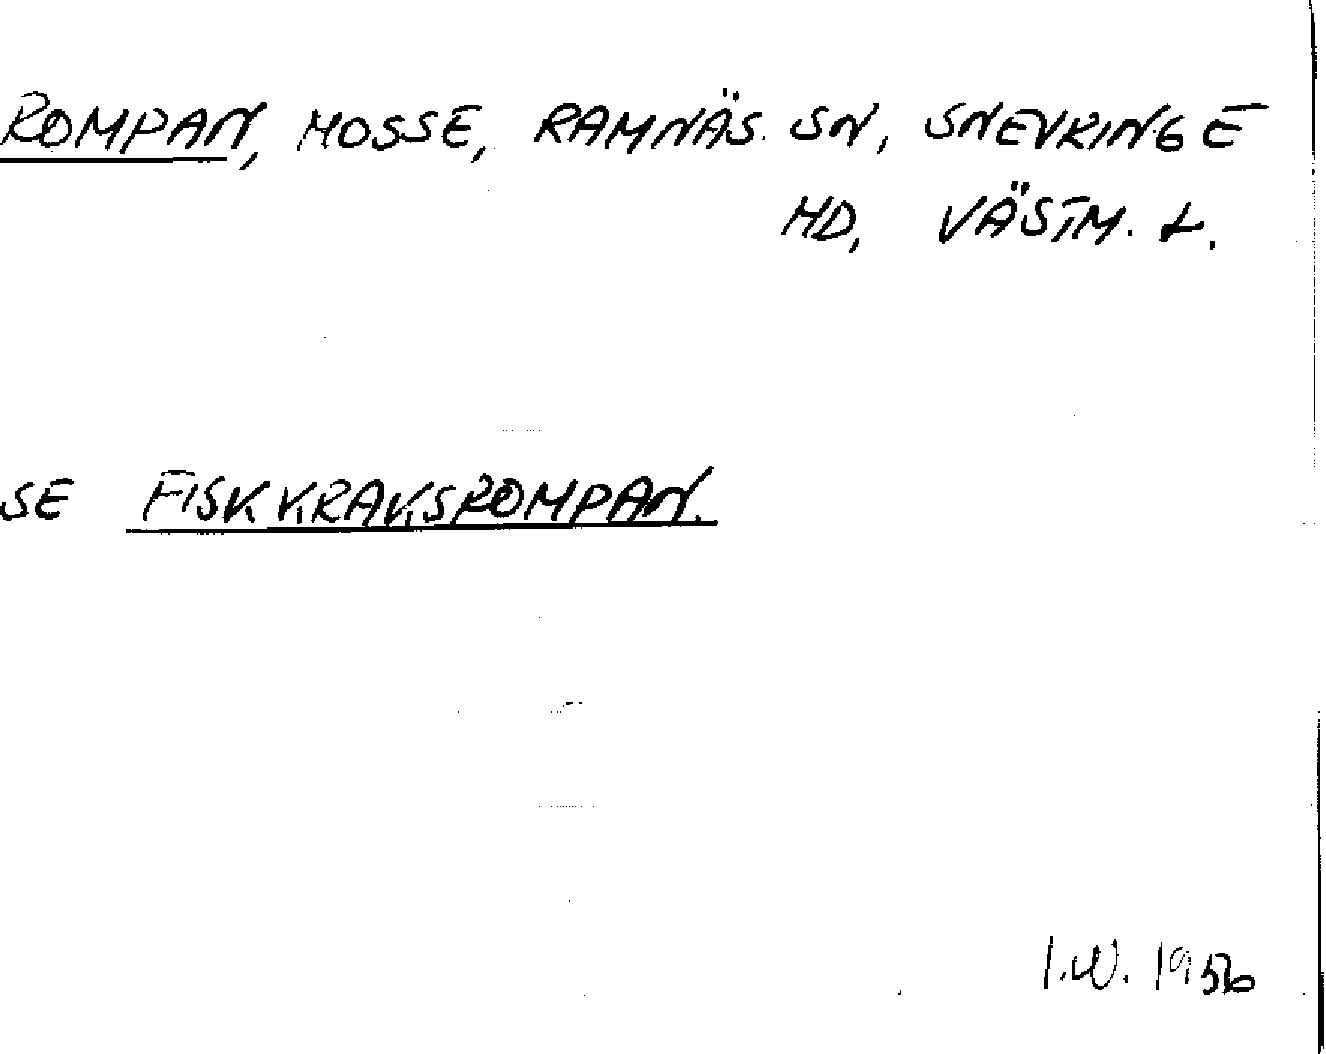 ROMPAN, MOSSE, RAMNÄS SN, SNEVRINGE
HD, VÄSTM. L.
SE FISKKRAKSROMPAN.
I.W. 1956